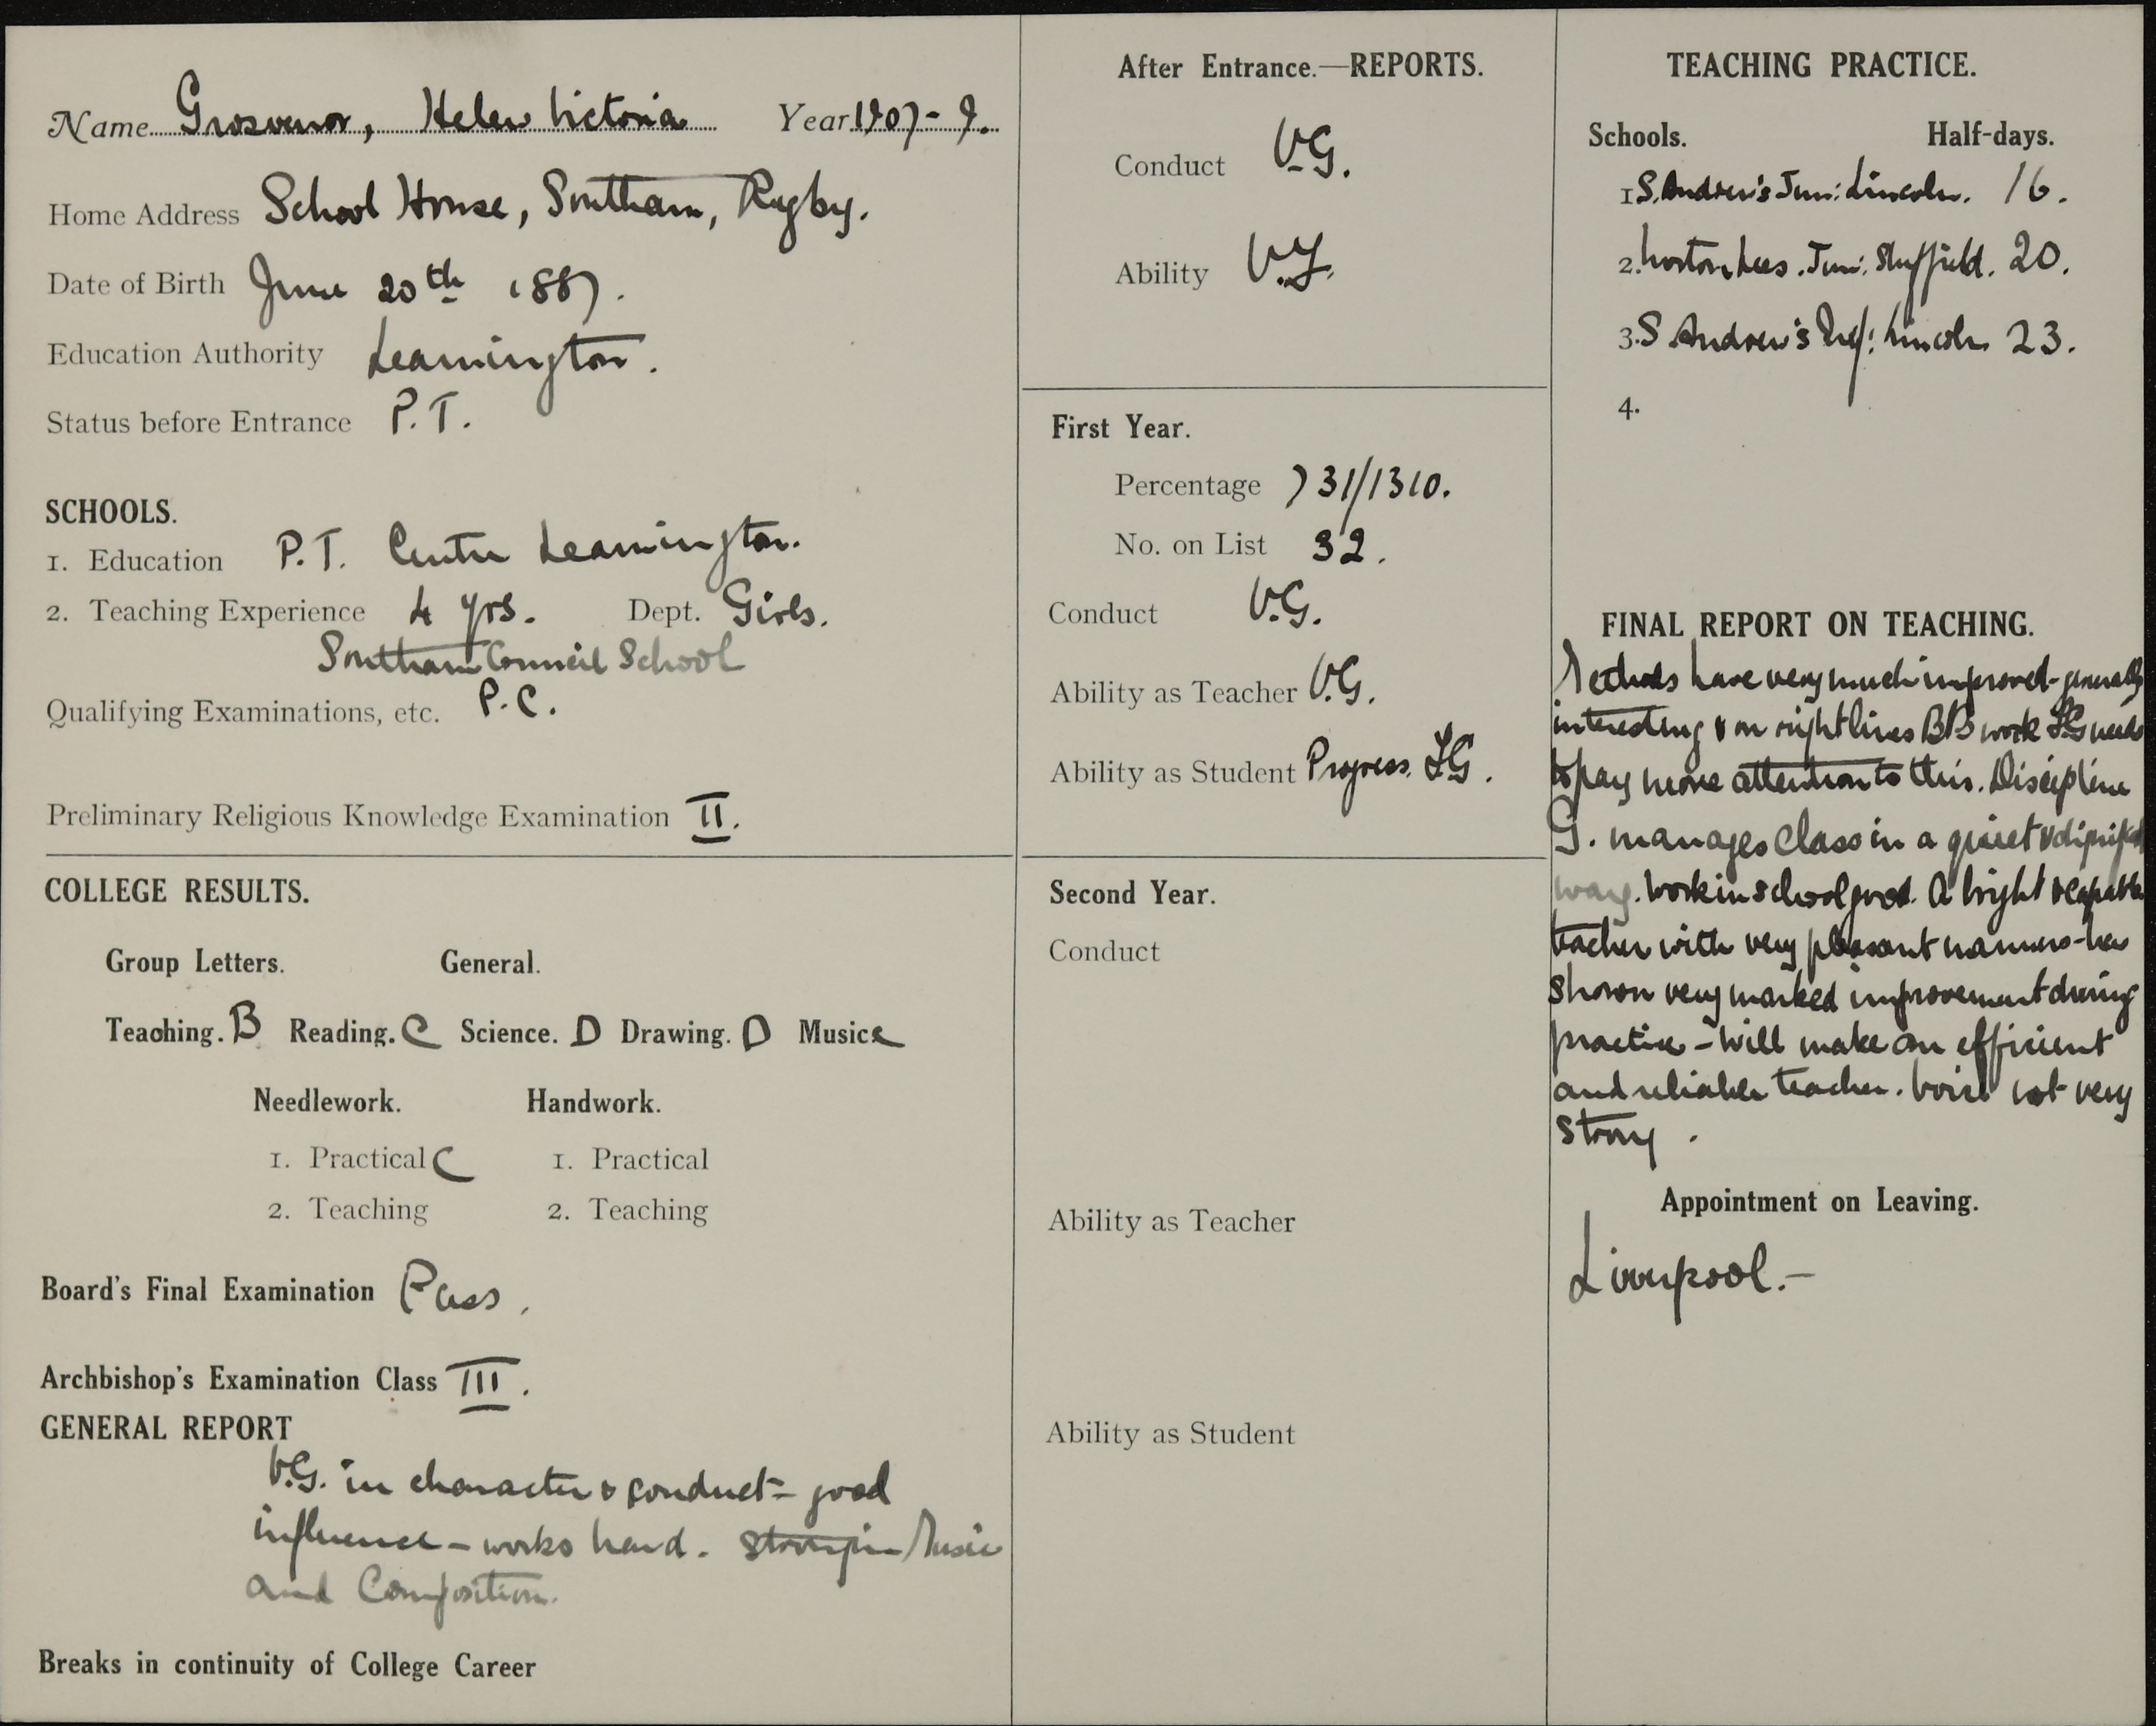 Name Grosvenor, Helen Victoria Year 1907-9.
Home Address School House, Southam, Rugby.
Date of Birth June 20th 1887.
Education Authority Leamington.
Status before Entrance P.T.
SCHOOLS.
1. Education P.T. Centre Leamington.
2. Teaching Experience 4 yrs. Dept. Girls.
Southam Council School
Qualifying Examinations, etc. P.C.
Preliminary Religious Knowledge Examination II.
COLLEGE RESULTS.
Group Letters. General.
Teaching. B Reading. C Science. D Drawing. D Music C
Needlework. Handwork.
1. Practical C 1. Practical
2. Teaching 2. Teaching
Board's Final Examination Pass.
Archbishop's Examination Class III.
GENERAL REPORT
V.G. in character & conduct - good
influence - works hard. Strong in Music
and Composition.
Breaks in continuity of College Career
After Entrance.—REPORTS.
Conduct V.G.
Ability V.F.
First Year.
Percentage 731/1310.
No. on List 32.
Conduct V.G.
Ability as Teacher V.G.
Ability as Student Progress. FG.
Second Year.
Conduct
Ability as Teacher
Ability as Student
TEACHING PRACTICE.
Schools. Half-days.
1 S. Andrew's Jun: Lincoln. 16.
2. Norton Lees. Jun: Sheffield. 20.
3. S Andrew's Inf: Lincoln 23.
4.
FINAL REPORT ON TEACHING.
Methods have very much improved - generally
interesting & on right lines BB work FG needs
to pay more attention to this. Discipline
G. manages class in a quiet & dignified
way. Work in school good. A bright & capable
teacher with very pleasant manners - has
shown very marked improvement during
practice - Will make an efficient
and reliable teacher. Voice not very
strong.
Appointment on Leaving.
Liverpool.-